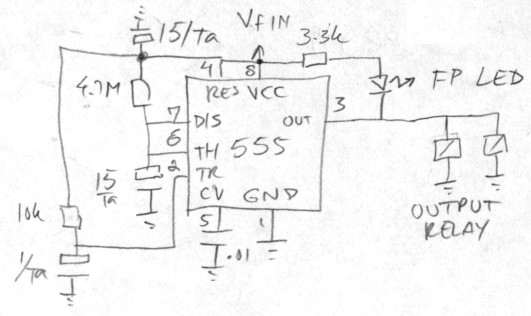 15/Ta
VfIN
3.3k
4
8
FP LED
4.7M
RES VCC
3
7
DIS
OUT
6
TH
555
2
TR
15/Ta
CV
GND
10k
5
1
OUTPUT
RELAY
.01
1/Ta